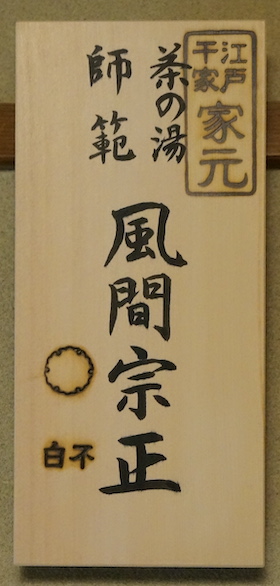 江戸
千家
家元
茶の湯
師範
風間宗正
不白